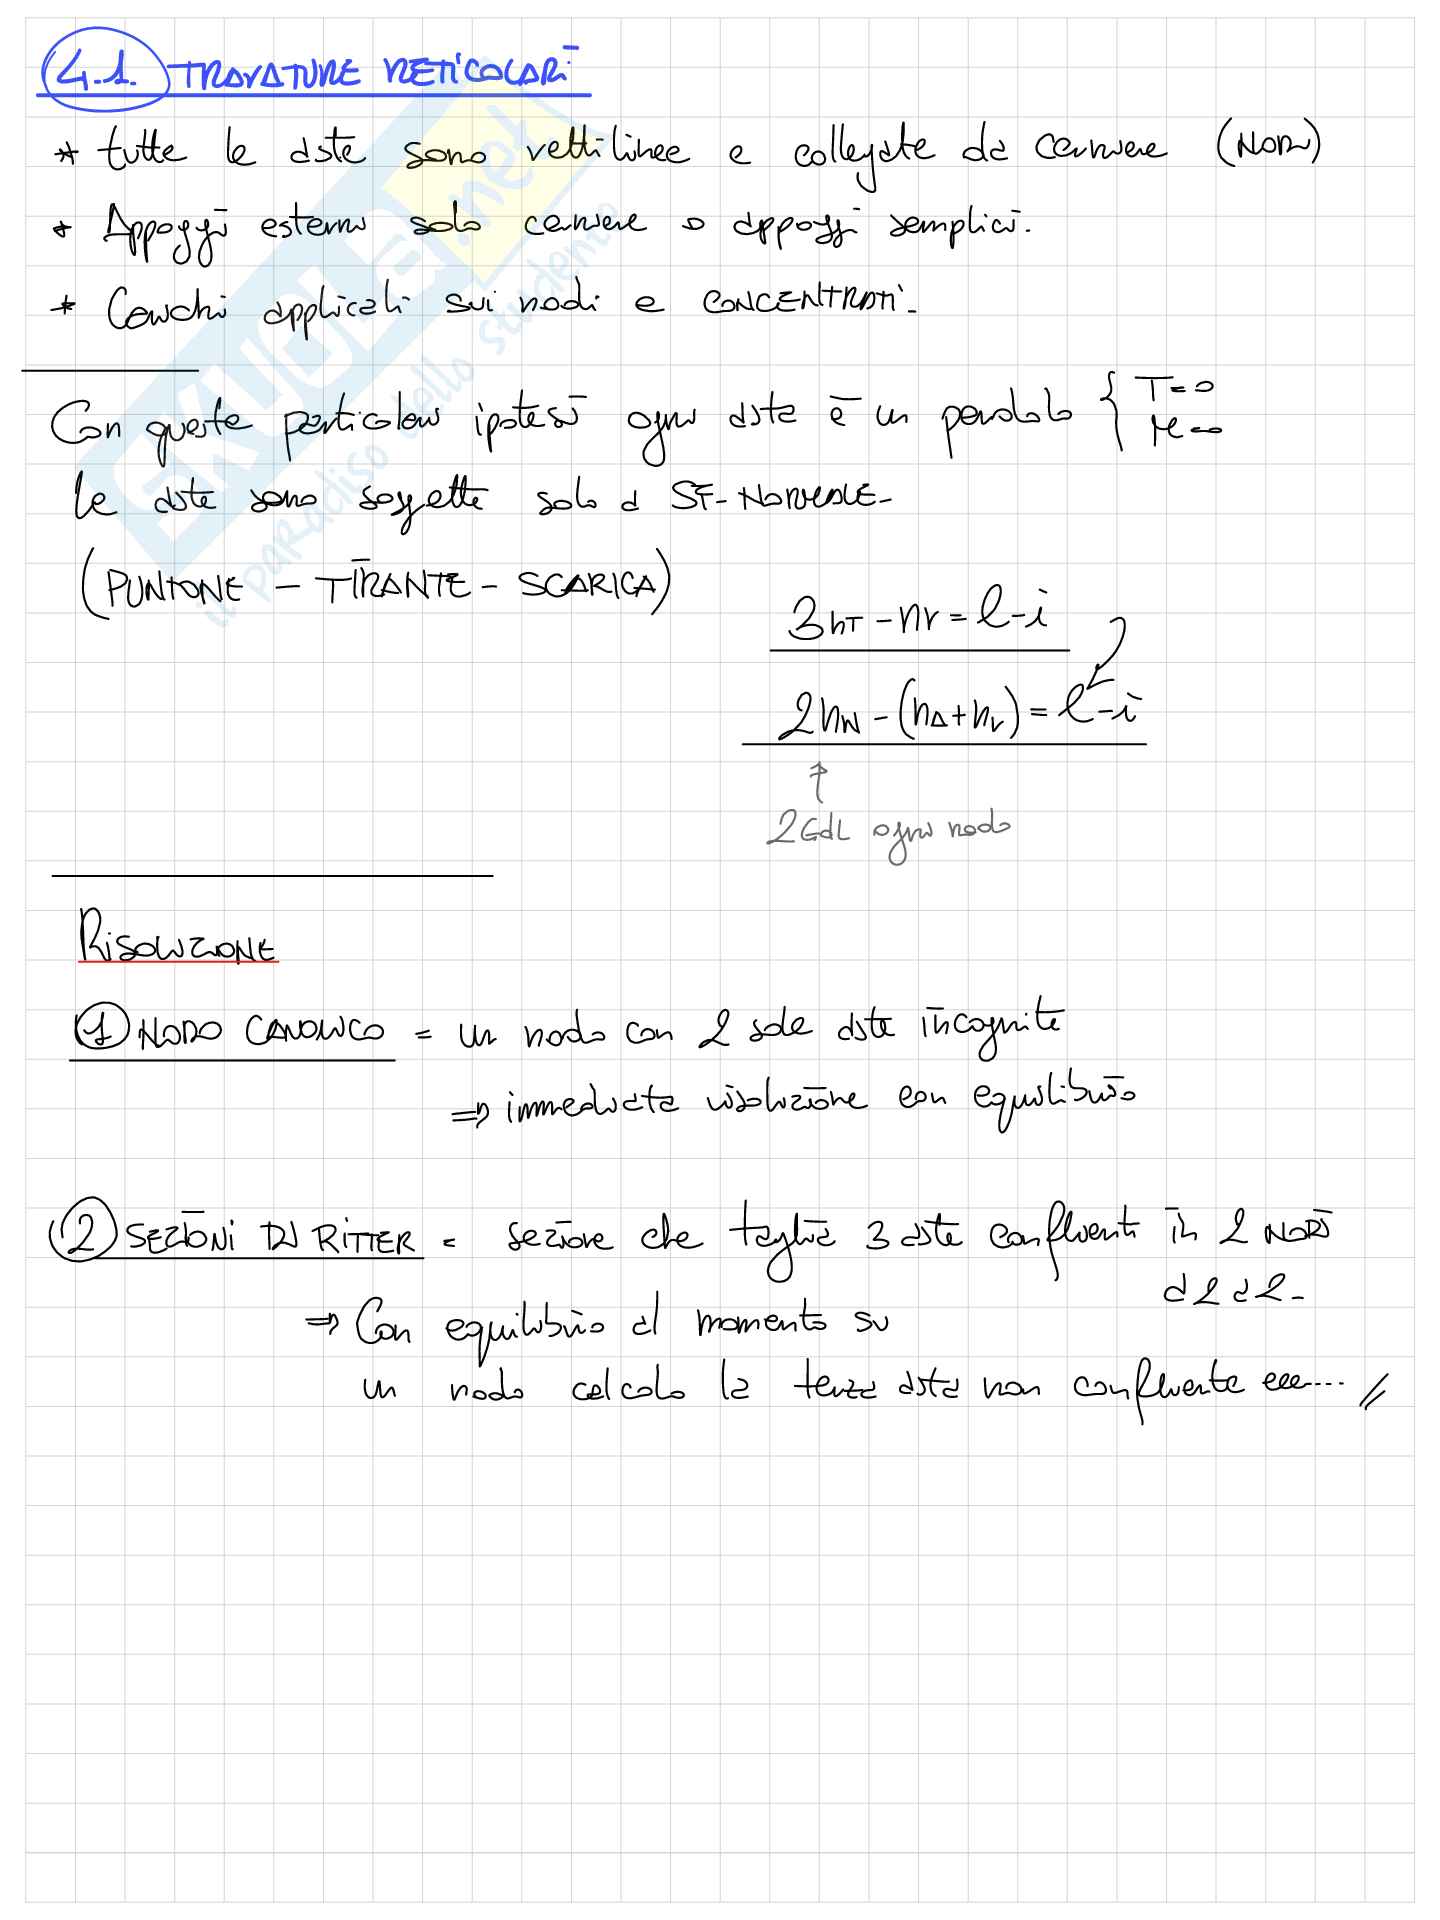 4.1. TRAVATURE RETICOLARI
* tutte le aste sono rettilinee e collegate da cerniere (NODI)
* Appoggi esterni solo cerniere o appoggi semplici.
* Carichi applicati sui nodi e CONCENTRATI.
Con queste particolari ipotesi ogni asta è un pendolo { T=0
M=0
le aste sono soggette solo a SF-NORMALE-
(PUNTONE - TIRANTE - SCARICA)
3nT - nv = l-i
2nN - (nA+nv) = l-i
2GdL ogni nodo
RISOLUZIONE
1 NODO CANONICO = un nodo con 2 sole aste incognite
⇒ immediata risoluzione con equilibrio
2 SEZIONI DI RITTER = sezione che taglia 3 aste confluenti in 2 NODI
a 2 a 2-
⇒ Con equilibrio al momento su
un nodo calcolo la terza asta non confluente ecc.... //
SKUOLA.net
il paradiso dello studente